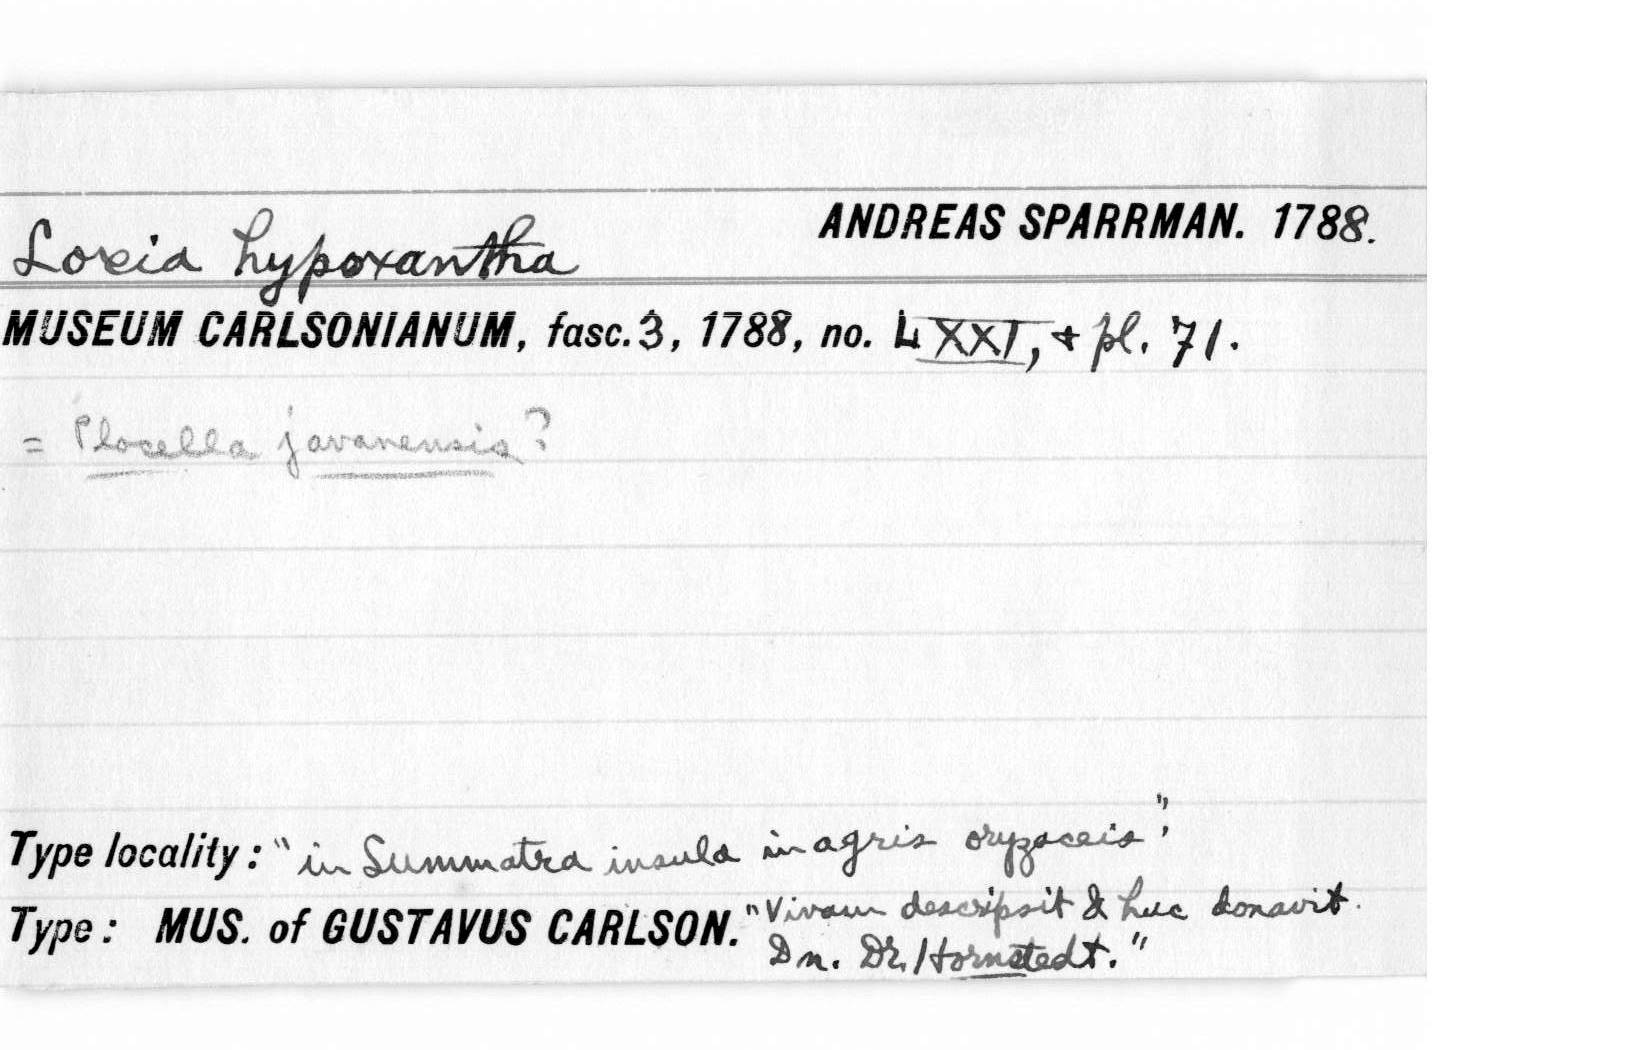 Loxia hypoxantha
ANDREAS SPARRMAN. 1788.
MUSEUM CARLSONIANUM, fasc. 3, 1788, no. LXXI, & pl. 71.
= Plocella javanensis?
Type locality: "in Summatra insula in agris oryzaceis";
Type: MUS. of GUSTAVUS CARLSON. "Vivam descripsit & huc donavit.
Dn. Dr. Hornstedt."